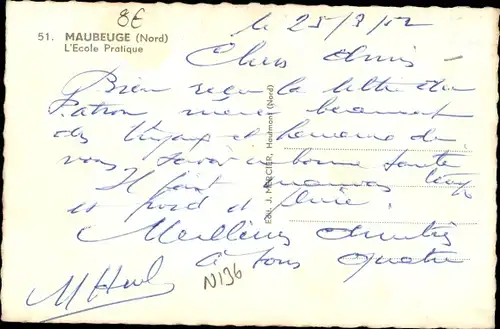 8€
le 25/7/52
51. MAUBEUGE (Nord)
L'Ecole Pratique
Chers Amis
Bien reçu la lettre du
Patron merci beaucoup
des et de
vous savoir en bonne santé
Il fait mauvais temps
et froid et pluie.
Meilleures Amitiés
à tous quatre
N136
Edit. J. MERCIER, Hautmont (Nord)